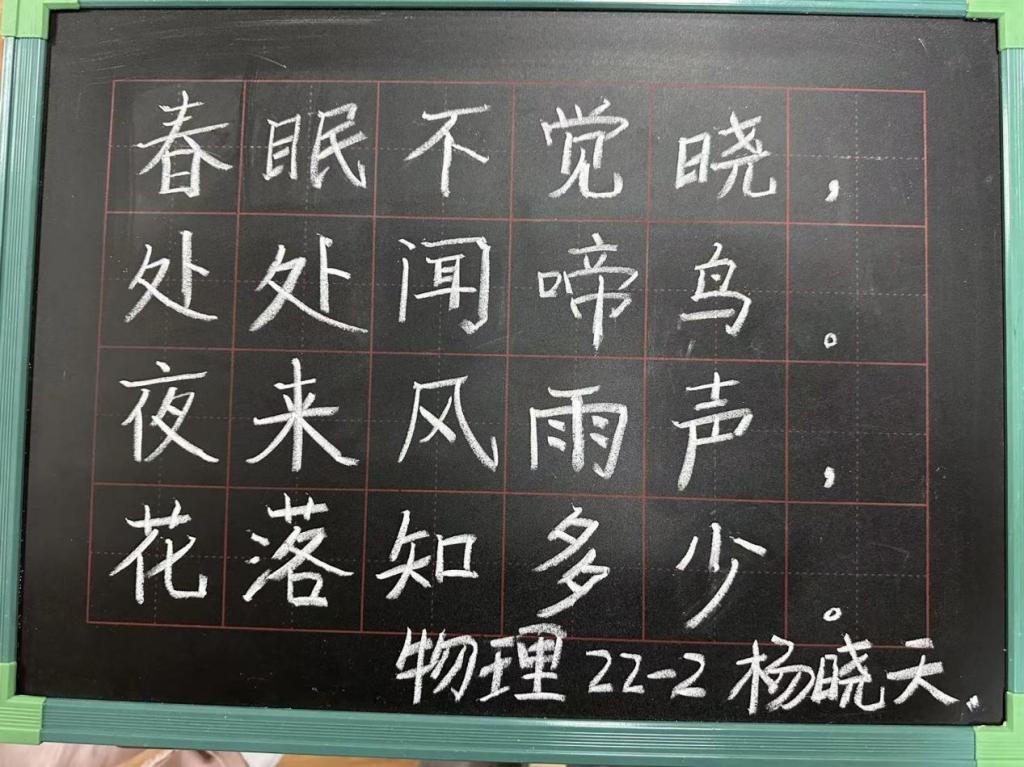 春眠不觉晓，
处处闻啼鸟。
夜来风雨声，
花落知多少。
物理22-2 杨晓天